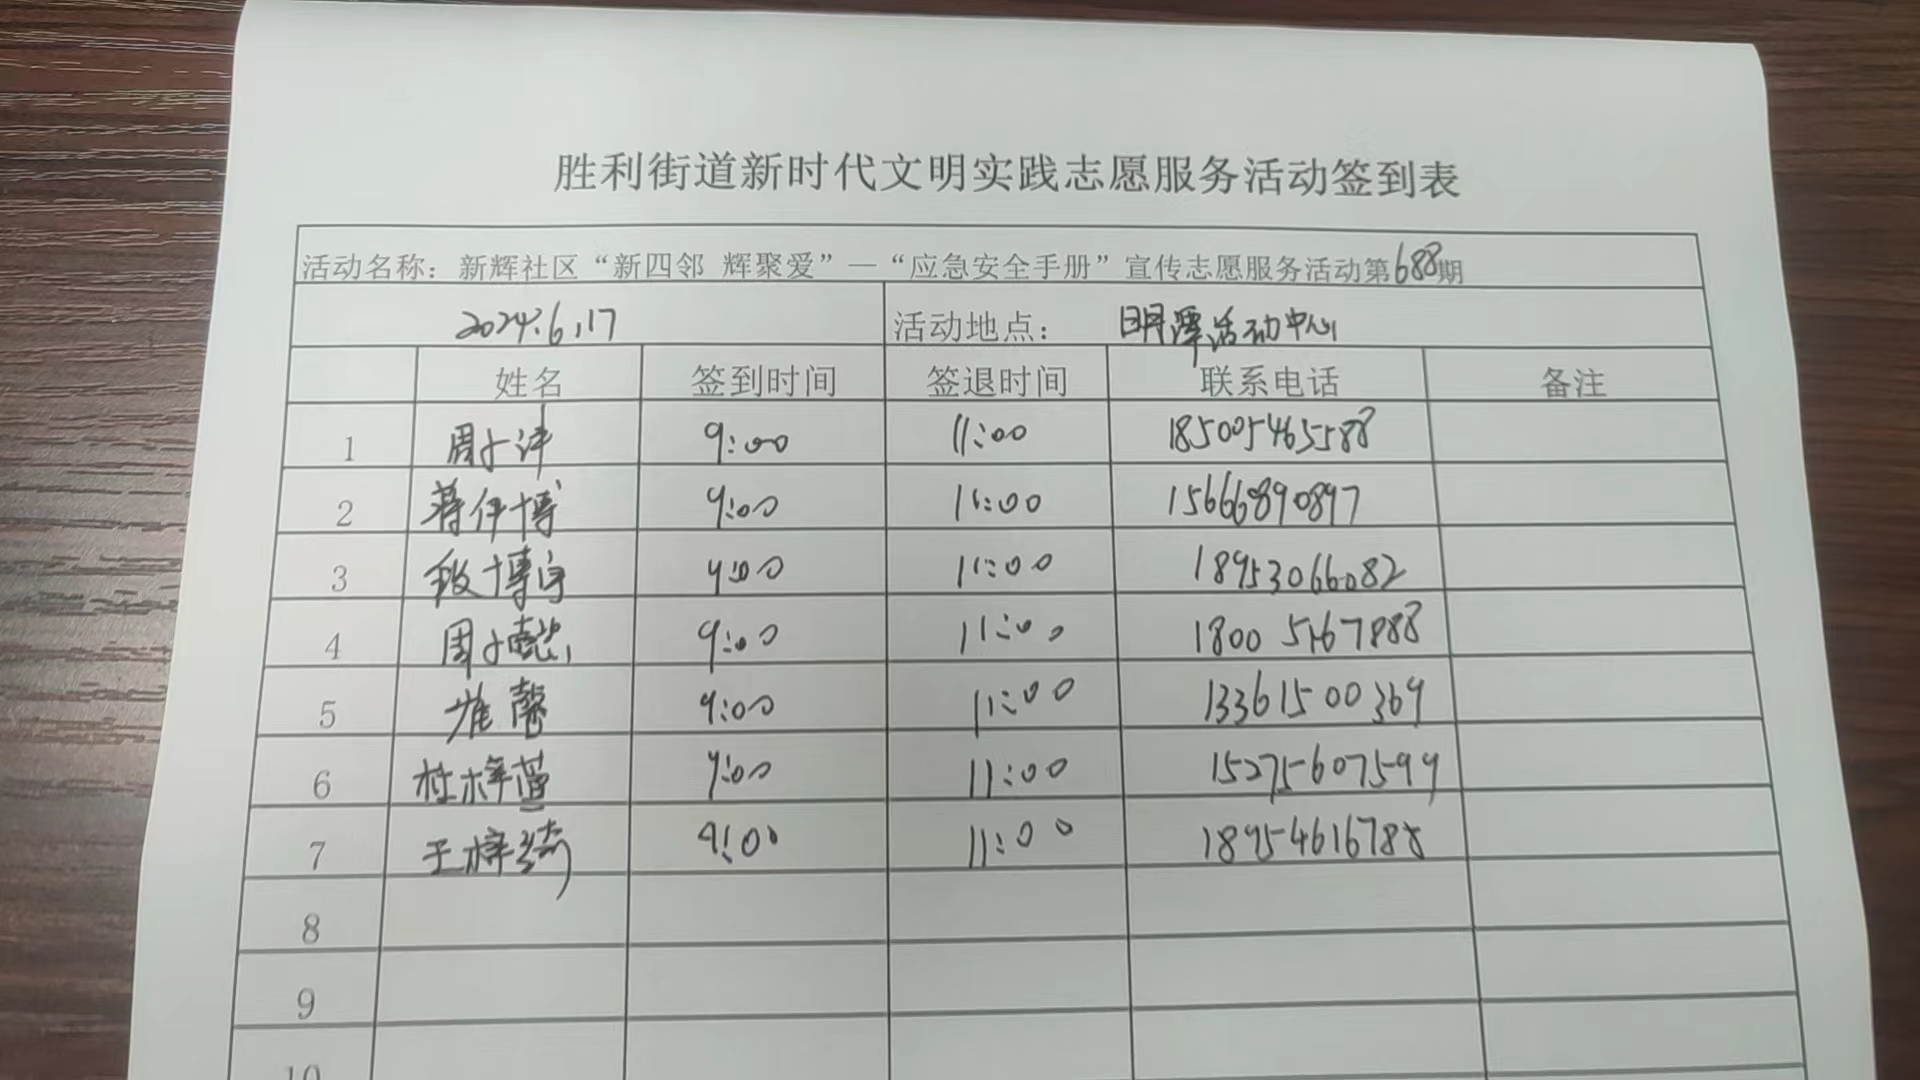 胜利街道新时代文明实践志愿服务活动签到表
活动名称：新辉社区“新四邻 辉聚爱”—“应急安全手册”宣传志愿服务活动第688期
2024.6.17 活动地点： 明潭活动中心
姓名 签到时间 签退时间 联系电话 备注
1 9:00 11:00
2 蒋伊博 9:00 11:00 15666890897
3 9:00 11:00 18953066082
4 周子懿 9:00 11:00 18005467888
5 雅馨 9:00 11:00 13361500369
6 杜梓萱 9:00 11:00 15275607599
7 王梓绮 9:00 11:00 18954616788
8
9
10